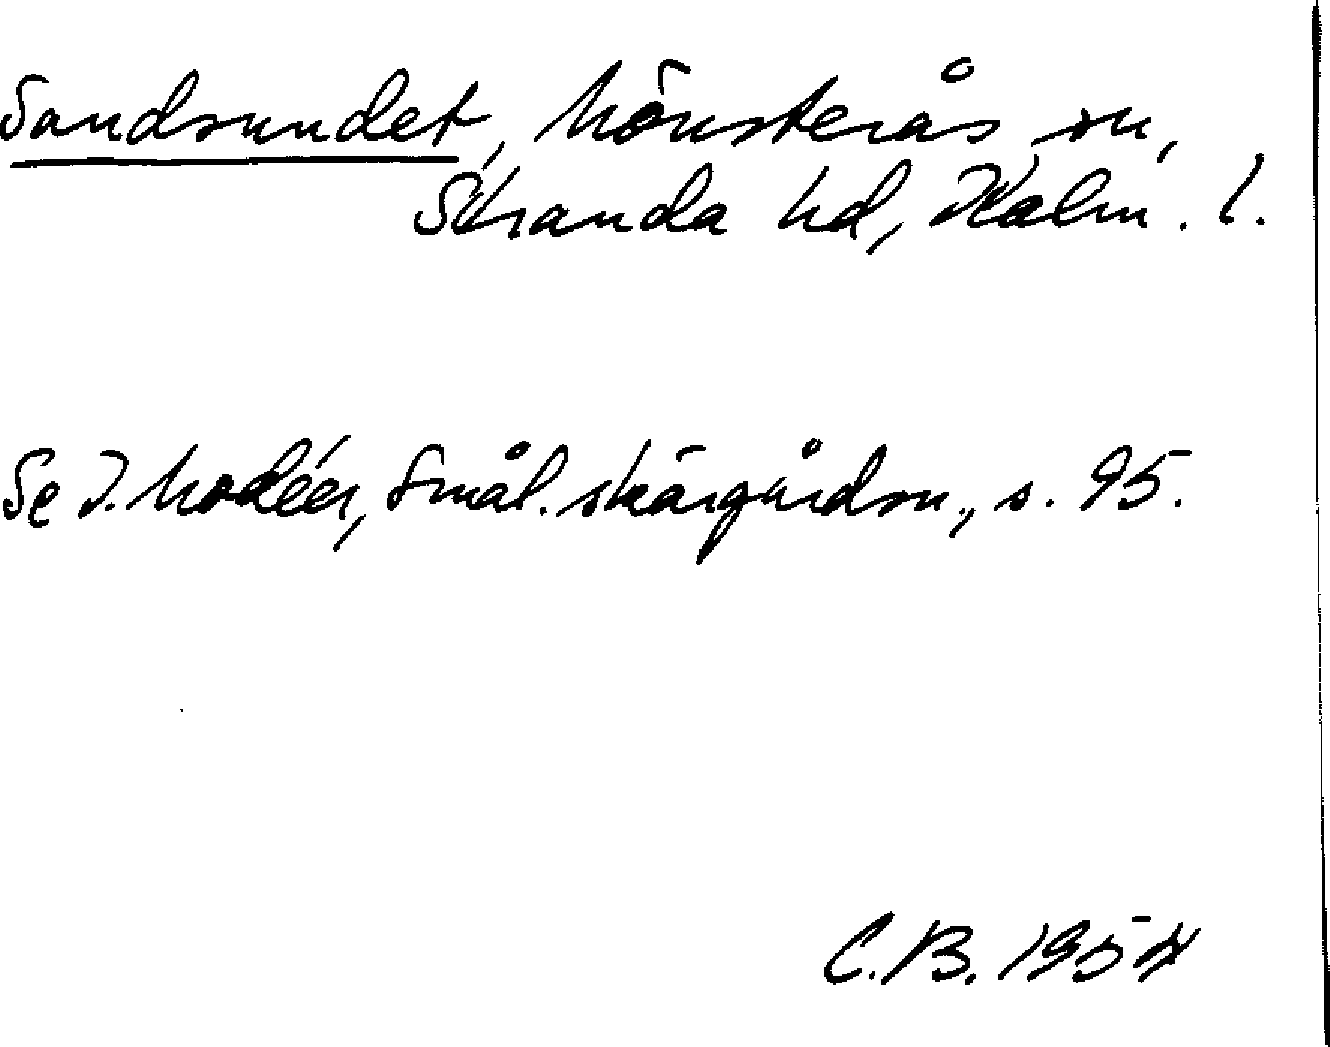 Sandsundet, Mönsterås sn,
Stranda hd, Kalm. l.
Se I. Modéer, Smål. skärgårdsn., s. 95.
C.B. 1954